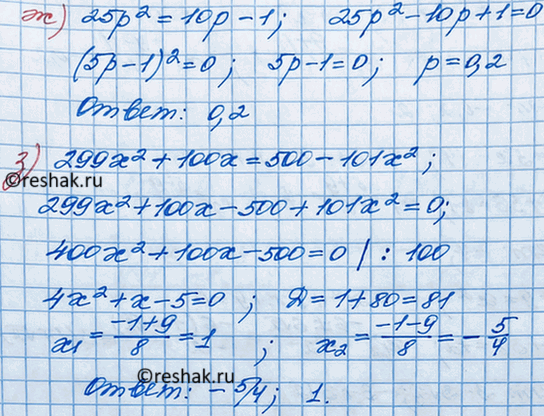 ж) 25p² = 10p - 1; 25p² - 10p + 1 = 0
(5p - 1)² = 0; 5p - 1 = 0; p = 0,2
Ответ: 0,2
з) 299x² + 100x = 500 - 101x²;
©reshak.ru
299x² + 100x - 500 + 101x² = 0;
400x² + 100x - 500 = 0 | : 100
4x² + x - 5 = 0; Д = 1 + 80 = 81
x₁ = (-1+9)/8 = 1; x₂ = (-1-9)/8 = -5/4
©reshak.ru
Ответ: -5/4; 1.